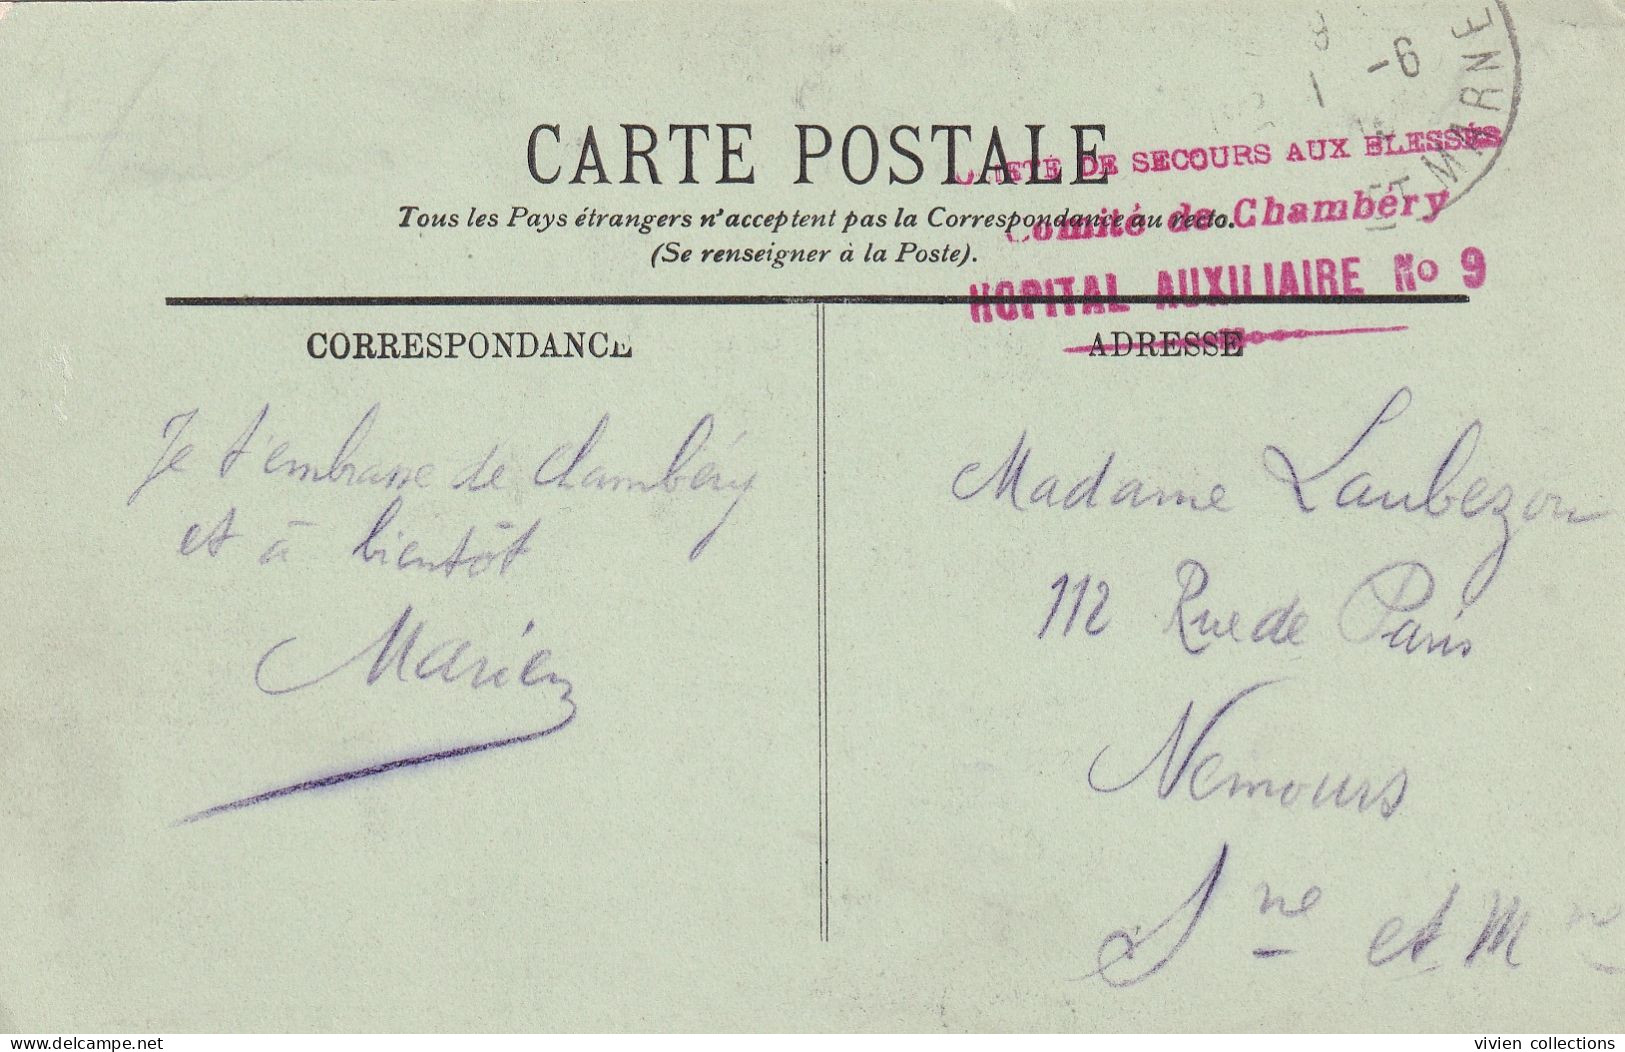 -6
ET MARNE
CARTE POSTALE
DE SECOURS AUX BLESSÉS
Tous les Pays étrangers n'acceptent pas la Correspondance au recto.
Comité de Chambéry
(Se renseigner à la Poste).
HOPITAL AUXILIAIRE No 9
CORRESPONDANCE
ADRESSE
Je t'embrasse de Chambéry
et à bientôt
Marien
Madame Laubezon
112 Rue de Paris
Nemours
Sne et Mne
delcampe.net
vivien collections